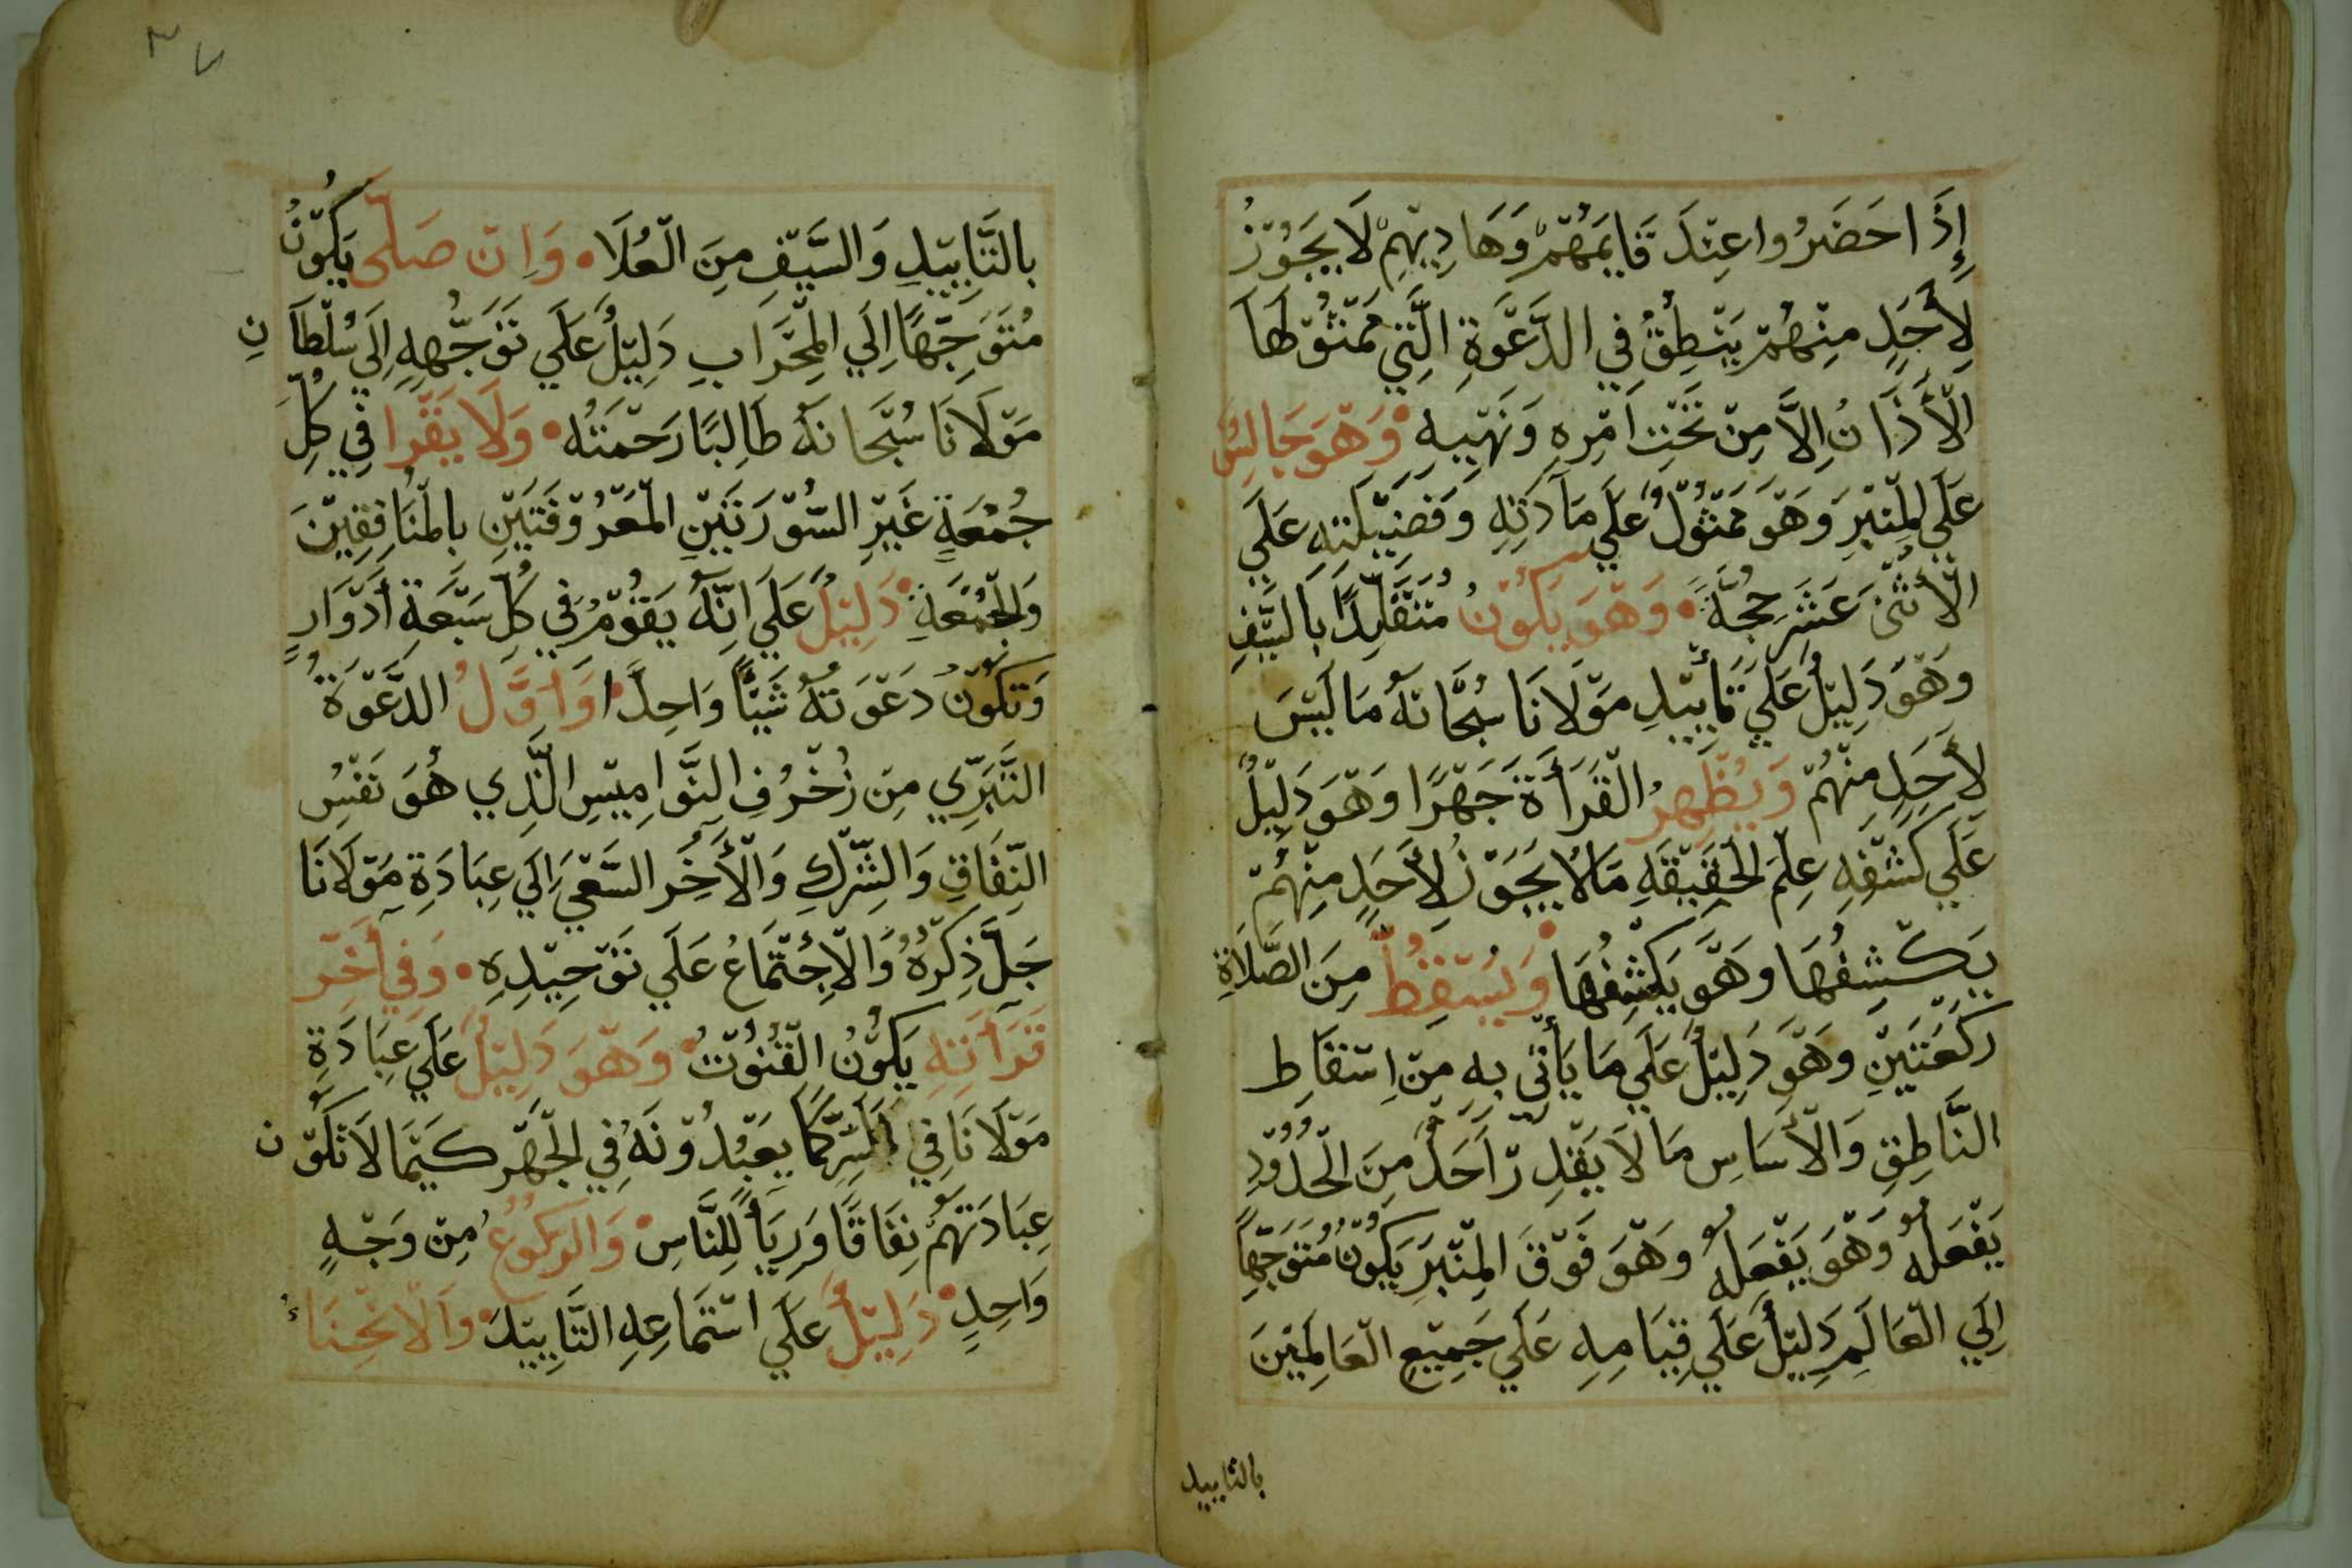 إِذَا حَضَرُوا عِنْدَ قَايمَهُمْ وَهَادِيْهِمْ لَا يَجُوْزُ
لِأَحَدٍ مِنْهُمْ يَنْطِقُ فِي الدَّعْوَةِ الَّتِي مَمْثُوْلهَا
الْأَذَانُ اِلَّا مِنْ تَحْتِ اَمْرِهِ وَنَهْيِهِ • وَهْوَ جَالِسٌ
عَلَي الْمِنْبَرِ وَهْوَ مَمْثُوْلٌ عَلَي مَآدَتِهِ وَفَضِيْلَتِهِ عَلَي
الْأَثْنَى عَشَرَ حُجَّةً • وَهْوَ يَكُوْنُ مُتَقَلِّدًا بِالسَّيْفِ
وَهْوَ دَلِيْلٌ عَلَي تَأْيِيْدِ مَوْلَانَا سُبْحَانَهُ مَا لَيْسَ
لِأَحَدٍ مِنْهُمْ وَيُظْهِرُ الْقَرَأَةَ جَهْرًا وَهْوَ دَلِيْلٌ
عَلَي كَشْفِهِ عِلْمَ الْحَقِيْقَةِ مَا لَا يَجُوْزُ لِأَحَدٍ مِنْهُمْ
يَكْشِفُهَا وَهْوَ يَكْشِفُهَا • وَيُسْقِطُ مِنَ الصَّلَاةِ
رَكْعَتَيْنِ وَهْوَ دَلِيْلٌ عَلَي مَا يَأْتِي بِهِ مِنْ اِسْقَاطِ
النَّاطِقِ وَالْأَسَاسِ مَا لَا يَقْدِرْ اَحَدٌ مِنَ الْحُدُوْدِ
يَفْعَلُهُ وَهْوَ يَفْعَلُهُ وَهْوَ فَوْقَ الْمِنْبَرِ يَكُوْنُ مُتَوَجِّهًا
اِلَي الْعَالَمِ دَلِيْلٌ عَلَي قِيَامِهِ عَلَي جَمِيْعِ الْعَالَمِيْنَ
بالتاييد
٣٧
بِالتَّايِيْدِ وَالسَّيْفِ مِنَ الْعُلَا • وَاِنْ صَلَّى يَكُوْنُ
مُتَوَجِّهًا اِلَي الْمِحْرَابِ دَلِيْلٌ عَلَي تَوَجُّهِهِ اِلَي سُلْطَانِ
مَوْلَانَا سُبْحَانَهُ طَالِبًا رَحْمَتَهُ • وَلَا يَقْرا فِي كُلِّ
جُمْعَةٍ غَيْرِ السُّوْرَتَيْنِ الْمَعْرُوْفَتَيْنِ بِالْمُنَافِقِيْنَ
وَالْجُمْعَةِ • دَلِيْلٌ عَلَي انَّهُ يَقُوْمُ فِي كُلِّ سَبْعَةِ أَدْوَارٍ
وَتَكُوْنُ دَعْوَتُهُ شَيْئًا وَاحِدًا • وَاَوَّلُ الدَّعْوَةُ
التَّبَرِّي مِنْ زُخْرُفِ النَّوَامِيْسِ الَّذِي هُوَ نَفْسُ
النِّفَاقِ وَالشِّرْكِ وَالْأَخَرِ السَّعْيَ اِلَي عِبَادَةِ مَوْلَانَا
جَلَّ ذِكْرُهُ وَالْاِجْتَمَاعُ عَلَي تَوْحِيْدِهِ • وَفِي أَخْرِ
قَرَأَتِهِ يَكُوْنُ الْقُنُوْتُ • وَهْوَ دَلِيْلٌ عَلَي عِبَادَةِ
مَوْلَانَا فِي السِّرِّ كَمَا يَعْبُدُوْنَهُ فِي الْجَهْرِ كَيْمَا لَا تَكُوْن
عِبَادَتَهُمْ نِفَاقًا وَرِيَأً لِلنَّاسِ • وَالرُكُوْعُ مِنْ وَجْهٍ
وَاحِدٍ • دَلِيْلٌ عَلَي اسْتِمَاعِهِ التَّايِيْدَ • وَالْاَنْحِنَاءُ